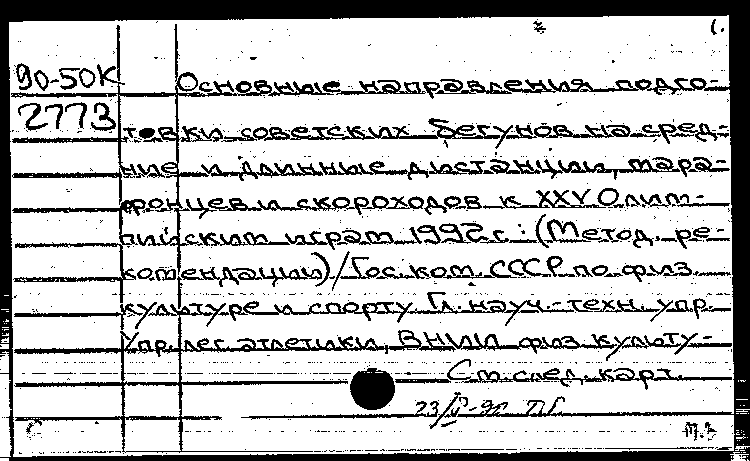 1.
90-50К Основные направления подго-
2773 товки советских бегунов на сред-
ние и длинные дистанции, мара-
фонцев и скороходов к XXV Олим-
пийским играм 1992 г.: (Метод. ре-
комендации) / Гос. ком. СССР по физ.
культуре и спорту. Гл. науч.-техн. упр.
Упр. лег. атлетики, ВНИИ физ. культу-
См. след. карт.